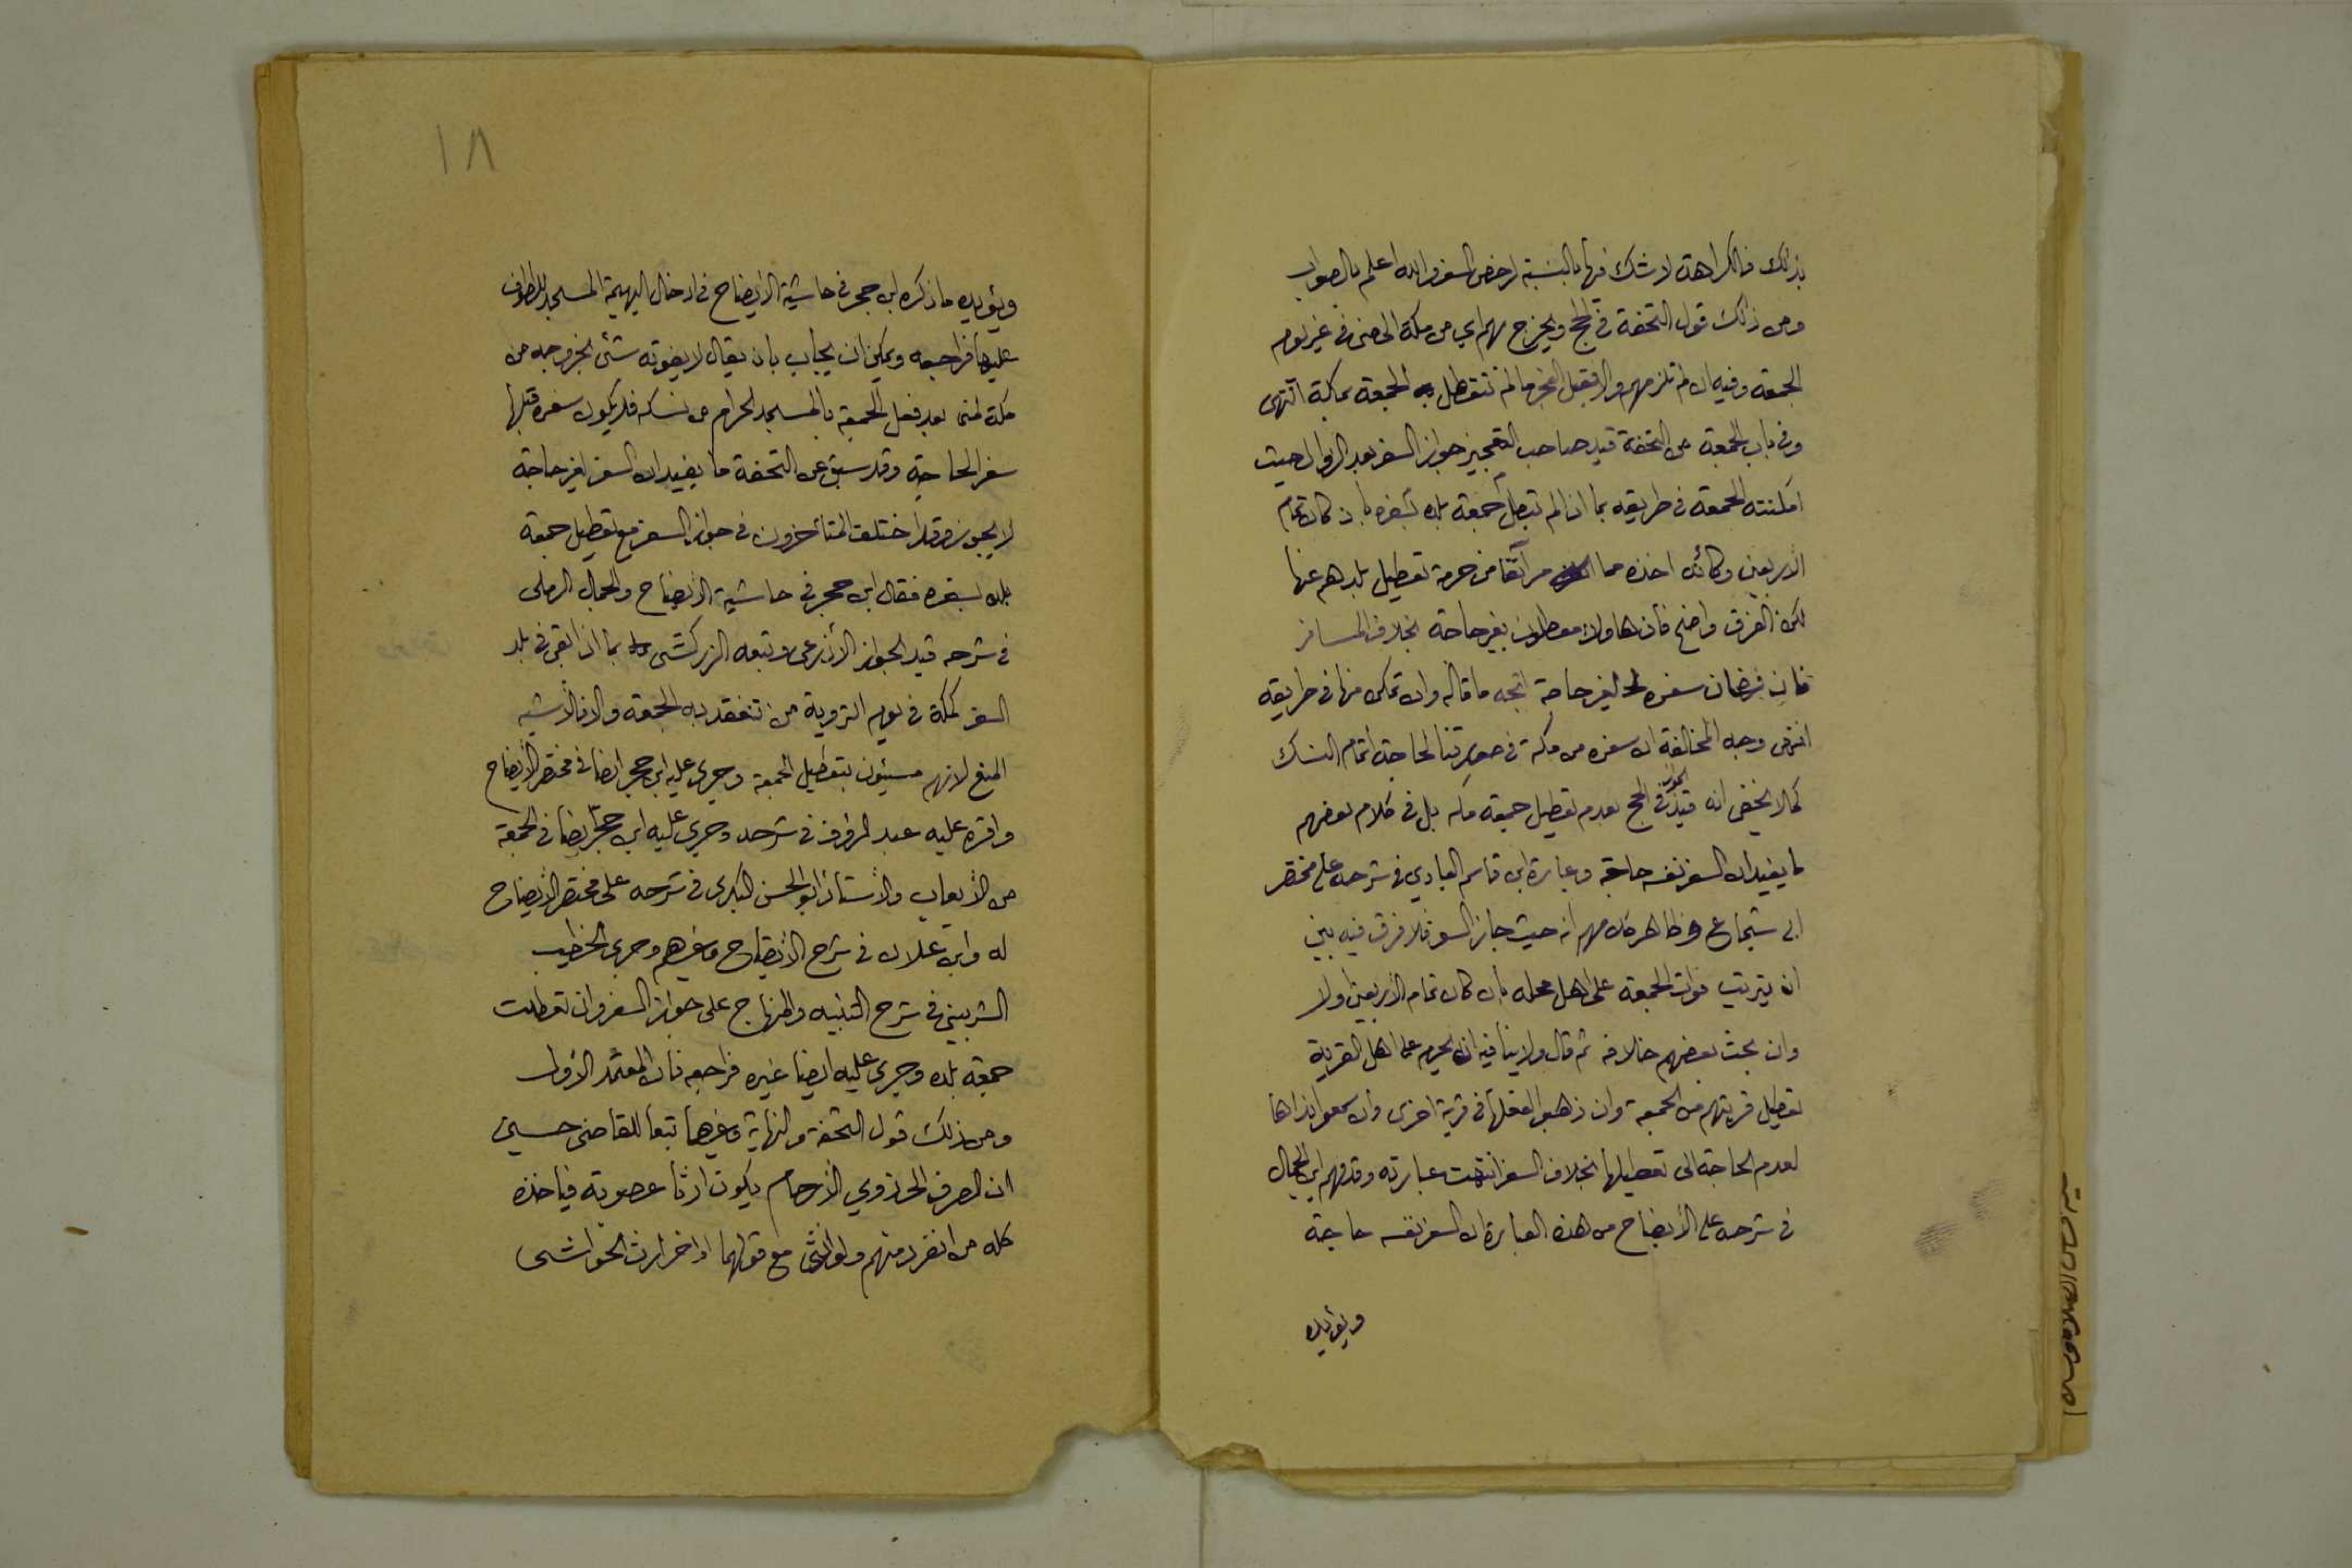 بذلك فالكراهة لا شك فيها بالنسبة لرخص السفر والله اعلم بالصواب
ومن ذلك قول التحفة في الحج ويخرج بهم اي من مكة الى منى في غير يوم
الجمعة وفيه ان لم تلزمهم والا فقبل الفجر ما لم تتعطل الجمعة بمكة انتهى
وفي باب الجمعة من التحفة قيد صاحب التعجيز جواز السفر بعد الزوال حيث
امكنته الجمعة في طريقه بما اذا لم تبطل جمعة بلده بسفره بان كان تمام
الاربعين وكأنه اخذه مما مر آنفا من حرمة تعطيل بلدهم عنها
لكن الفرق واضح فان هاولاء معطلون بغير حاجة بخلاف المسافر
فان فرضان سفره لغير حاجة اتجه ما قاله وان تمكن منها في طريقه
انتهى وجه المخالفة ان سفره من مكة في صورتنا لحاجة اتمام النسك
كما لا يخفى انه قيد الجواز في الحج بعدم تعطيل جمعة مكه بل في كلام بعضهم
ما يفيد ان السفر نفسه حاجة وعبارة ابن قاسم العبادي في شرحه على مختصر
ابي شجاع وظاهر كلامهم انه حيث جاز السفر فلا فرق فيه بين
ان يترتب فوات الجمعة على اهل محله بان كان تمام الاربعين اولا
وان بحث بعضهم خلافه ثم قال ولا ينافيه انه يحرم على اهل القرية
تعطيل قريتهم من الجمعة وان ذهبوا لفعلها في قرية اخرى وان سمعوا نداها
لعدم الحاجة الى تعطيلها بخلاف السفر انتهت عبارته وقد فهم ابن الجمال
في شرحه على الأيضاح من هذه العبارة ان السفر نفسه حاجة
ويؤيده
١٨
ويؤيده ما ذكره ابن حجر في حاشية الأيضاح في ادخال البهيمة المسجد للطواف
عليها فراجعه ويمكن ان يجاب بان يقال لا يفوته شئ بخروجه من
مكة لمنى بعد فعل الجمعة بالمسجد الحرام من نسكه فلا يكون سفره قبلها
سفر الحاجة وقد سبق عن التحفة ما يفيد ان السفر لغير حاجة
لا يجوز وقد اختلف المتأخرون في جواز السفر مع تعطيل جمعة
بلده بسفره فقال ابن حجر في حاشية الأيضاح والجمال الرملى
في شرحه قيد الجواز الأذرعى وتبعه الزركشى بما اذا بقى في بلد
السفر كمكة في يوم التروية من تنعقد به الجمعة والا فالأشبه
المنع لانهم مسيئون بتعطيل الجمعة وجرى عليه ابن حجر ايضا في مختصر الأيضاح
واقره عليه عبد الرؤوف في شرحه وجرى عليه ابن حجر ايضا في الجمعة
من الأيعاب والأستاذ ابو الحسن البكرى في شرحه على مختصر الأيضاح
له وابن علان في شرح الأيضاح وغيرهم وجرى الخطيب
الشربيني في شرح التنبيه والمنهاج على جواز السفر وان تعطلت
جمعة بلده وجرى عليه ايضا غيره فراجعه فان المعتمد الأول
ومن ذلك قول التحفة والنهاية وغيرهما تبعا للقاضى حسين
ان الصرف الى ذوي الأرحام يكون ارثا عصوبة فيأخذه
كله من انفرد منهم ولو انثى مع قولهما اواخر ارث الحواشى